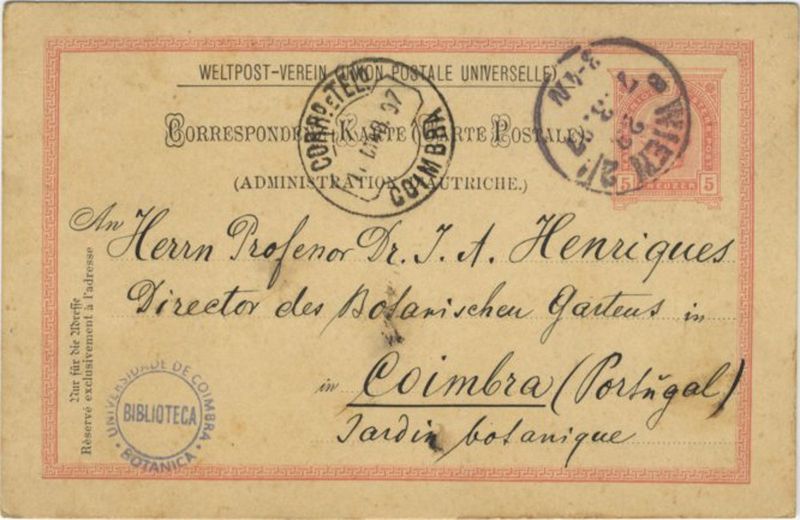 WELTPOST-VEREIN (UNION POSTALE UNIVERSELLE)
CORRESPONDENZ-KARTE (CARTE POSTALE)
(ADMINISTRATION D'AUTRICHE.)
CORR.º E TELEG.
COIMBRA
97
WIEN
5 KREUZER 5
An
Herrn Professor Dr. J. A. Henriques
Director des Botanischen Gartens in
in Coimbra (Portugal)
Jardin botanique
Nur für die Adresse
Réservé exclusivement à l'adresse
UNIVERSIDADE DE COIMBRA
BIBLIOTECA
BOTANICA